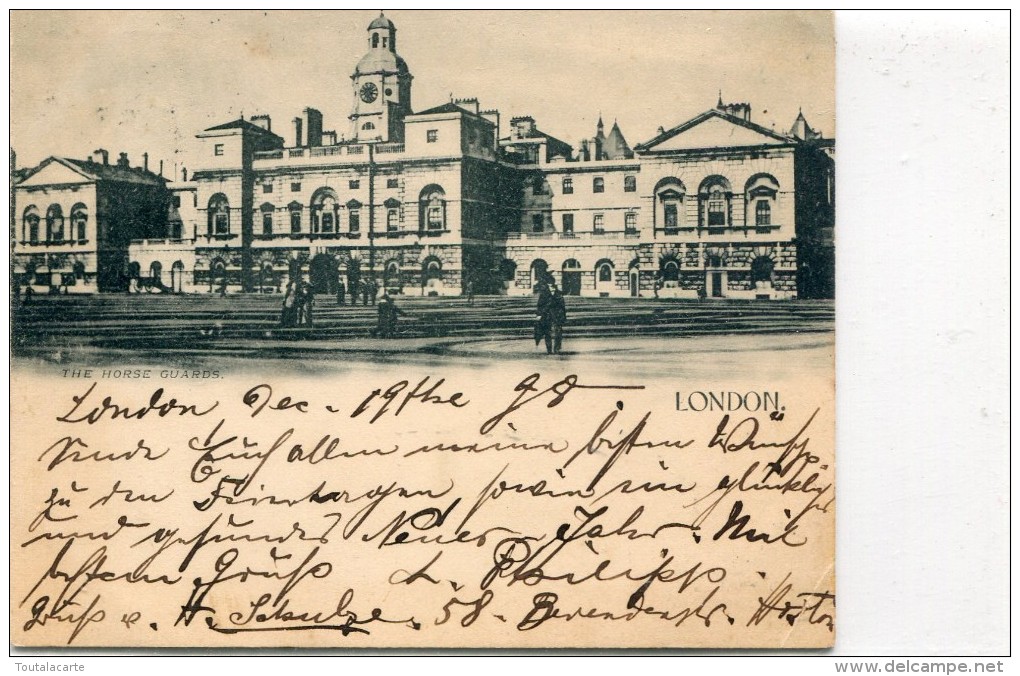 THE HORSE GUARDS.
LONDON.
London Dec. 19the 98
Sende Euch allen meine besten Wünsch
zu den Feiertagen, sowie ein glückliches
und gesundes Neues Jahr. Mit
bestem Gruß L. Philipp.
Gruß v. H. Schulze. 58 Hoxton
Toutalacarte
www.delcampe.net